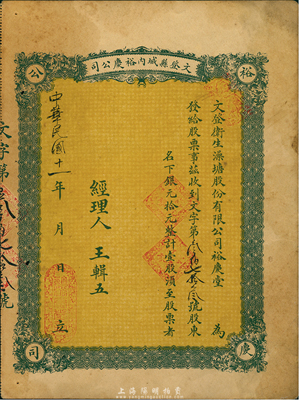 文登縣城内裕慶公司
裕
慶
公
司
文登衛生澡塘股份有限公司裕慶堂 為
發給股票事茲收到文字第 號股東
名下銀元拾元整計壹股須至股票者
經理人 王輯五
中華民國十一年 月 日 立
文字第 號
上海陽明拍賣